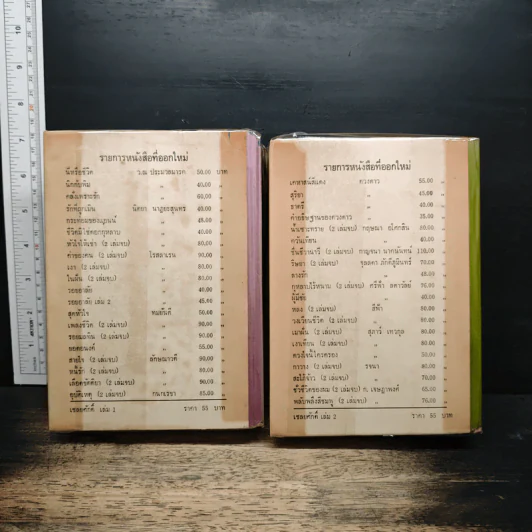 รายการหนังสือที่ออกใหม่
นี่หรือชีวิต ว.ณ ประมวลมารค 50.00 บาท
นักกลับทีม 40.00
คลั่งเพราะรัก 60.00
รักที่ถูกเมิน น้อย 40.00
48.00
ชีวิตมิใช่ดอกกุหลาบ 40.00
หัวใจให้เช่า (2 เล่มจบ) 80.00
ค่าของคน (2 เล่มจบ) โรสลาเรน 90.00
เงา (2 เล่มจบ) 80.00
ในฝัน (2 เล่มจบ) 80.00
รอยอาลัย 40.00
รอยอาลัย เล่ม 2 45.00
สุดหัวใจ ทมยันตี 50.00
เพลงชีวิต (2 เล่มจบ) 90.00
รอยมลทิน (2 เล่มจบ) 90.00
ยอดอนงค์ 55.00
สายใจ (2 เล่มจบ) ลักษณวดี 90.00
หนี้รัก (2 เล่มจบ) 80.00
เลือดขัตติยา (2 เล่มจบ) 90.00
อุบัติเหตุ (2 เล่มจบ) กนกเรขา 85.00
เชลยศักดิ์ เล่ม 1 ราคา 55 บาท
รายการหนังสือที่ออกใหม่
เคหาสน์สีแดง ดวงดาว 55.00
สุริยา 45.00
ราตรี 40.00
คำอธิษฐานของดวงดาว 35.00
น้ำเซาะทราย (2 เล่มจบ) กฤษณา อโศกสิน 80.00
ควันเทียน 40.00
จันทร์วานรี (2 เล่มจบ) กาญจนา นาคนันทน์ 110.00
ริษยา (2 เล่มจบ) จุลลดา ภักดีภูมินทร์ 70.00
45.00
กุหลาบไร้หนาม (2 เล่มจบ) ศรีฟ้า ลดาวัลย์ 70.00
ผู้มีชัย 40.00
หลง (2 เล่มจบ) สีฟ้า 80.00
วงเวียนชีวิต (2 เล่มจบ) 80.00
เมขลา (2 เล่มจบ) สุภาว์ เทวกุล 80.00
เงาเทียน (2 เล่มจบ) 80.00
50.00
ธาวรา (2 เล่มจบ) รจนา 80.00
สะใภ้จ้าว (2 เล่มจบ) 70.00
ชั่วชีวิตของผม (2 เล่มจบ) ก. เชษฎาพงศ์ 65.00
พลับพลึงสีชมพู (2 เล่มจบ) 70.00
เชลยศักดิ์ เล่ม 2 ราคา 55 บาท